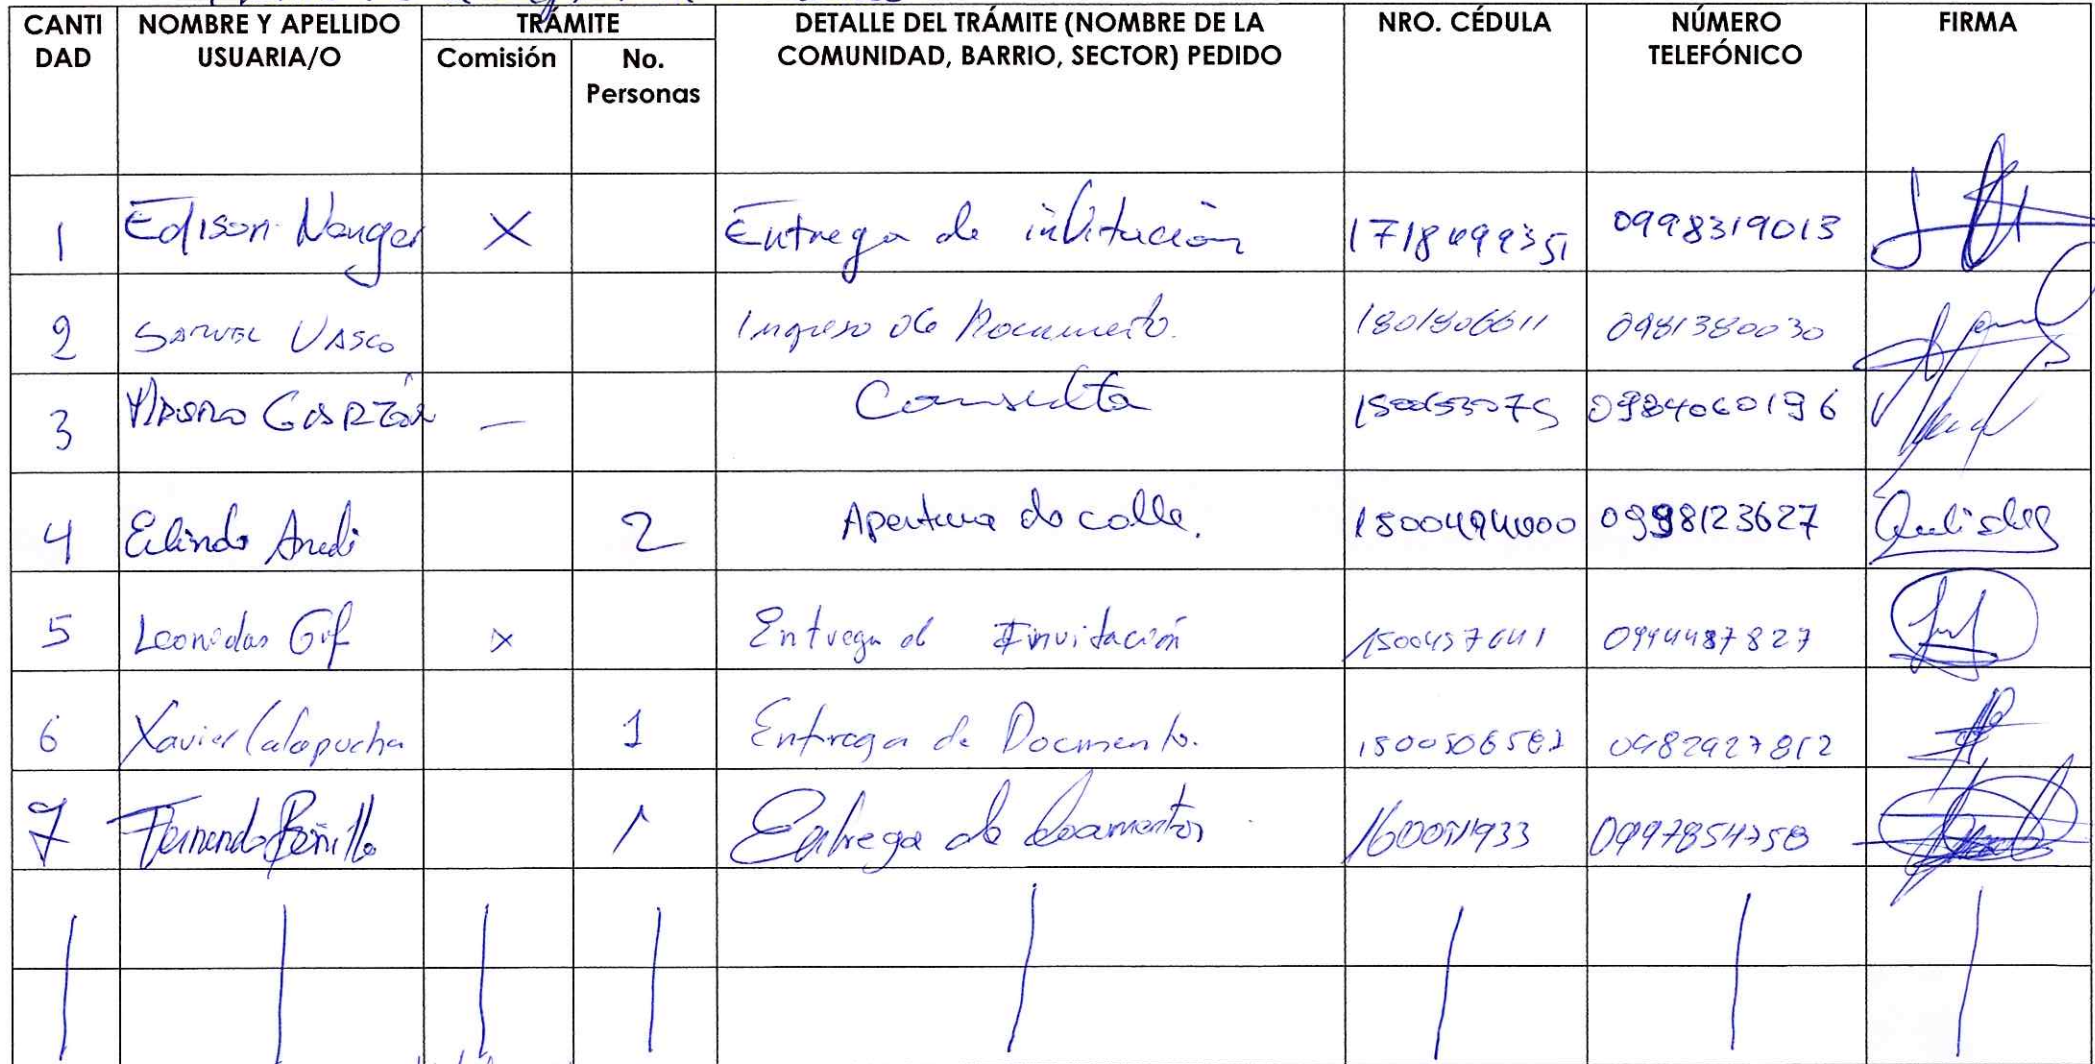 CANTIDAD NOMBRE Y APELLIDO USUARIA/O TRÁMITE Comisión No. Personas DETALLE DEL TRÁMITE (NOMBRE DE LA COMUNIDAD, BARRIO, SECTOR) PEDIDO NRO. CÉDULA NÚMERO TELEFÓNICO FIRMA
1 Edison X Entrega de inbitación 0998319013
2 SAMUEL VASCO Ingreso de Documento. 1801806611 0981380030
3 GARZÓN — Consulta 0984060196
4 Andi 2 Apertura de calle. 1500494000 0998123627
5 Leonidas x Entrega de Invitación 0994487827
6 Xavier Calapucha 1 Entrega de Documento. 0982927812
7 Fernando Bonilla 1 Entrega de documentos